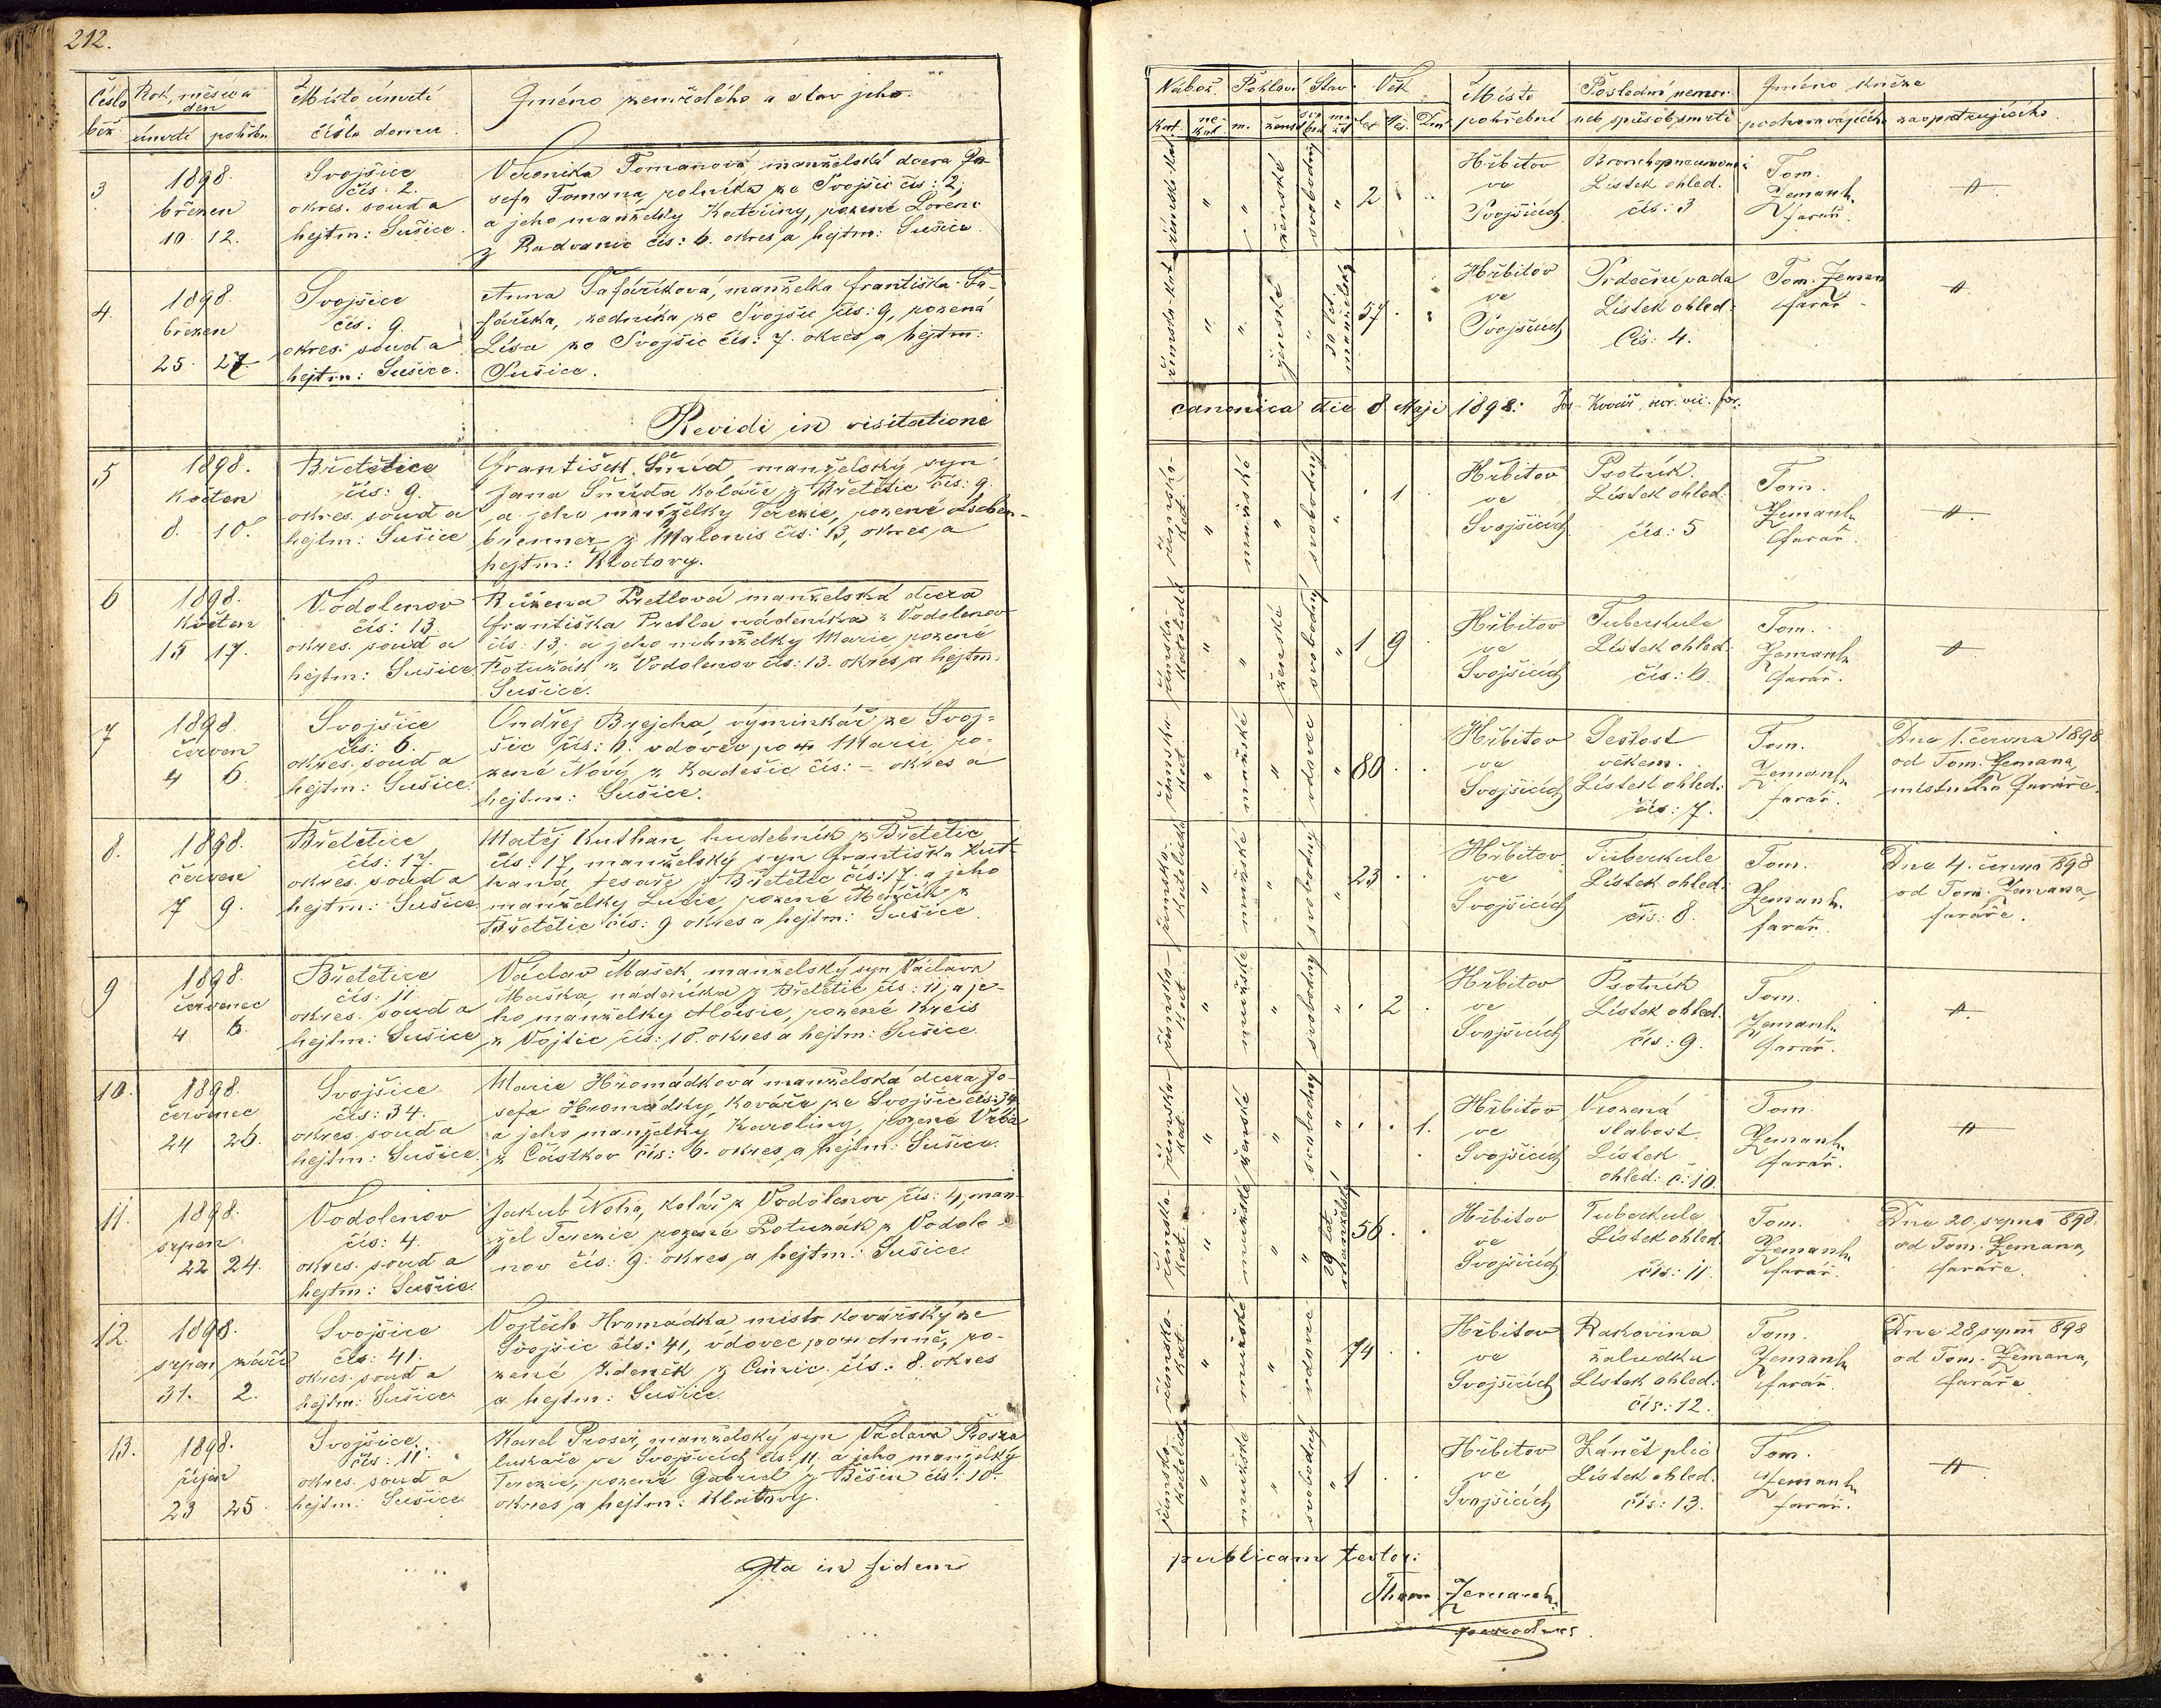 212.
Číslo běž
Rok, měsíc a den
úmrtí pohřbu
Místo úmrtí
číslo domu
Jméno zemřelého a stav jeho
3
1898.
březen
10. 12.
Svojšice
čís: 2.
okres. soud a
hejtm: Sušice.
Veronika Tomanová manželská dcera Jo-
sefa Tomana, rolníka ze Svojšic čís: 2,
a jeho manželky Kateřiny, rozené Lorenc
z Radvanic čís: 6. okres a hejtm: Sušice.
4.
1898.
březen
25. 27.
Svojšice
čís: 9.
okres. soud a
hejtm: Sušice.
Anna Šafaříková, manželka Františka Ša-
faříka, zedníka ze Svojšic čís: 9, rozená
Lisa ze Svojšic čís: 7. okres a hejtm:
Sušice.
Revidi in visitatione
5
1898.
květen
8. 10.
Břetětice
čís: 9.
okres. soud a
hejtm: Sušice
František Šmíd, manželský syn
Jana Šmída koláře z Břetětic čís: 9.
a jeho manželky Terezie, rozené
brenner z Malonic čís: 13, okres a
hejtm: Klatovy.
6
1898.
Květen
15 17.
Vodolenov
čís: 13.
okres. soud a
hejtm: Sušice.
Růžena Pretlová manželská dcera
Františka Pretla nádeníka z Vodolenov
čís: 13, a jeho manželky Marie, rozené
Potužák z Vodolenov čís: 13. okres a hejtm.
Sušice.
7
1898
červen
4 6.
Svojšice
čís: 6.
okres. soud a
hejtm: Sušice.
Ondřej Brejcha, výminkář ze Svoj-
šic čís: 6. vdovec po + Marii, ro-
zené Nový z Kadešic čís: - okres a
hejtm: Sušice.
8.
1898.
červen
7 9.
Břetětice
čís: 17.
okres. soud a
hejtm: Sušice
Matěj Kuthan, hudebník z Břetětic
čís: 17, manželský syn Františka Kut-
hana, tesaře z Břetětic čís: 17. a jeho
manželky Lucie, rozené z
Břetětic čís: 9 okres a hejtm: Sušice.
9
1898.
červenec
4 6.
Břetětice
čís: 11.
okres. soud a
hejtm: Sušice
Václav Mašek, manželský syn Václava
Maška, nádeníka z Břetětic čís: 11, a je-
ho manželky Aloisie, rozené Kreis
z Vojtic čís: 18. okres a hejtm: Sušice.
10.
1898.
červenec
24 26.
Svojšice
čís: 34.
okres. soud a
hejtm: Sušice.
Marie Hromádková manželská dcera Jo-
sefa Hromádky, kováře ze Svojšic čís: 34
a jeho manželky Karoliny, rozené Vrba
z Částkov čís: 6. okres a hejtm: Sušice.
11.
1898.
srpen
22 24.
Vodolenov
čís: 4.
okres. soud a
hejtm: Sušice.
Jakub Noha, kolář z Vodolenov čís: 4, man-
žel Terezie rozené Potužák z Vodole-
nov čís: 9. okres a hejtm: Sušice.
12.
1898.
srpen září
31. 2.
Svojšice
čís: 41.
okres. soud a
hejtm: Sušice.
Vojtěch Hromádka mistr kovářský ze
Svojšic čís: 41, vdovec po + Anně, ro-
zené Zdeněk z čís: 8. okres
a hejtm: Sušice.
13.
1898.
říjen
23 25.
Svojšice
čís: 11.
okres. soud a
hejtm: Sušice.
Karel Proser, manželský syn Václava
ve Svojšicích čís: 11. a jeho manželky
Terezie, rozené Gabriel z Běšin čís: 10.
okres a hejtm: Klatovy.
Ita in fidem
Nábož. Pohlaví Stav. Věk
Kat. ne-kat m. žensk svobod man žel Let Měs. Dní
Místo
pohřební
Poslední nemoc
neb spůsob smrti
Jméno kněze
pochovávajícího zaopatřujícího
římsko-kat " " ženské svobodný " 2
Hřbitov
ve
Svojšicích
Bronchopneumoni
Lístek ohled.
čís: 3
Tom.
Zeman
farář.
římsko-kat " " ženské " 30 let manželský 57
Hřbitov
ve
Svojšicích
Srdeční vada
Lístek ohled.
Čís: 4.
Tom. Zeman
farář
canonica die 8 Maji 1898:
římsko-kat. " mužské " svobodný " 1
Hřbitov
ve
Svojšicích
Psotník.
Lístek ohled.
čís: 5
Tom.
Zeman
farář.
římsko-katolické " " ženské svobodný " 1 9
Hřbitov
ve
Svojšicích
Tuberkule
Lístek ohled.
čís: 6.
Tom.
Zeman
farář.
římsko-kat. " mužské " vdovec " 80
Hřbitov
ve
Svojšicích
Sešlost
věkem.
Lístek ohled.
čís: 7.
Tom.
Zeman
farář.
Dne 1. června 1898
od Tom. Zemana,
místního faráře.
římsko-katolické " mužské " svobodný " 23
Hřbitov
ve
Svojšicích
Tuberkule
Lístek ohled.
čís: 8.
Tom.
Zeman
farář.
Dne 4. června 898
od Tom. Zemana,
faráře.
římsko-kat. " mužské " svobodný " 2
Hřbitov
ve
Svojšicích
Psotník
Lístek ohled.
čís: 9.
Tom.
Zeman
farář.
římsko-kat " " ženské svobodný " 1.
Hřbitov
ve
Svojšicích
Vrozená
slabost.
Lístek
ohled: č: 10.
Tom.
Zeman
farář.
římsko-kat. " mužské " " 29 let manželský 56
Hřbitov
ve
Svojšicích
Tuberkule
Lístek ohled.
čís: 11.
Tom.
Zeman
farář.
Dne 20. srpna 898.
od Tom. Zemana,
faráře.
římsko-kat. " mužské " vdovec 74
Hřbitov
ve
Svojšicích
Rakovina
žaludku
Lístek ohled.
čís: 12.
Tom.
Zeman
farář.
Dne 28 srpna 898
od Tom. Zemana,
faráře
římsko-katolické " mužské " svobodný " 1
Hřbitov
ve
Svojšicích
Zánět plic
Lístek ohled.
čís: 13.
Tom.
Zeman
farář.
publicam testor:
Thom Zeman